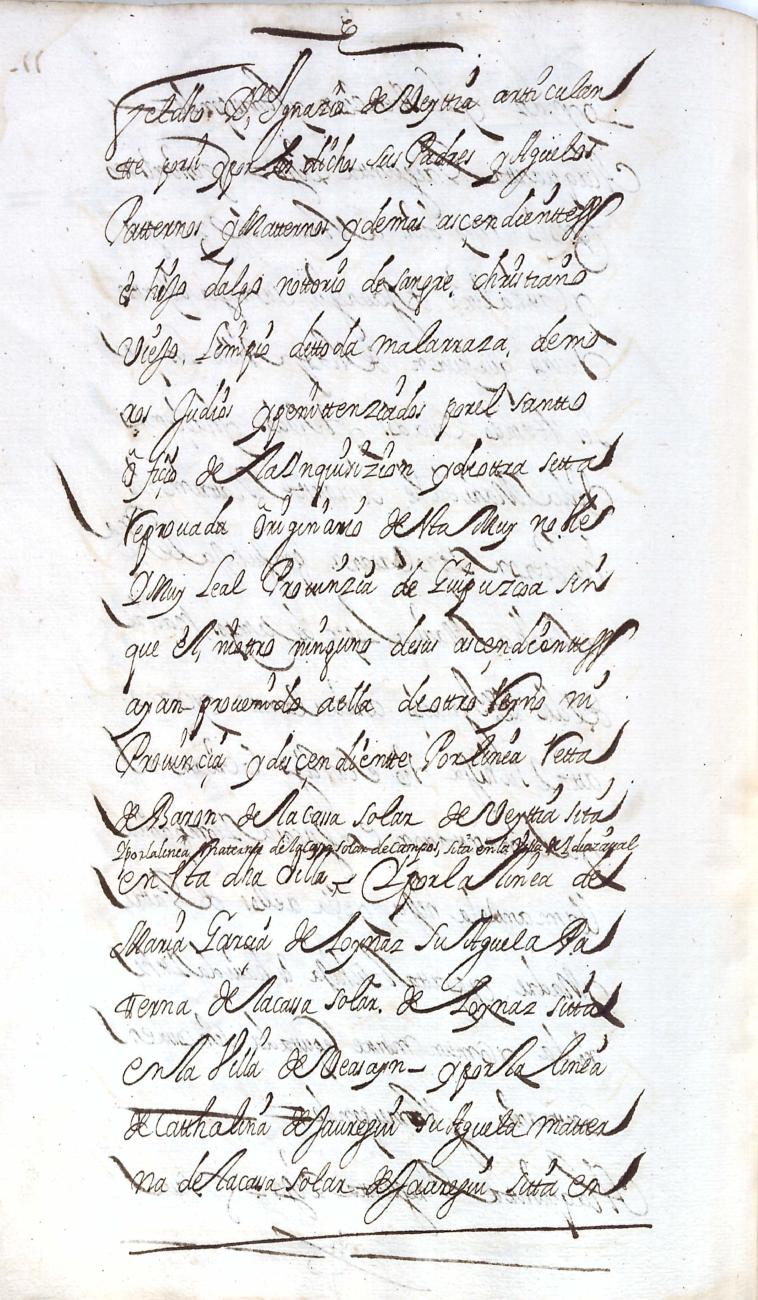 Yel dho Dn Ygnazio de Veyttia articulan
tte por si y por los dichos sus Padres y Aguelos
Patternos y Matternos y demas ascendienttes
es hijo dalgo nottorio de sangre, christiano
viejo, limpio de ttoda mala rraza, de mo
ros Judios y penittenziados por el santto
officio de la Ynquisizion y de ottra setta
reprouada originario de esta Muy noble
Y Muy Leal Prouinzia de Guipuzcoa sin
que el, ni ottro ninguno de sus ascendienttes
ayan prouenido a ella de ottro Reyno ni
Prouincia y descendiente Por linea Retta
de Baron de la cassa solar de Veyttia sita
Y por la linea Materna de la cassa solar de Campos, sita en la Villa de
en esta dha Villa Y por la linea de
Maria Garcia de Loynaz su Aguela Pa
tterna, de la cassa solar de Loynaz sitta
en la Villa de Veasayn y por la linea
de Catthalina de Jauregui su Aguela matter
na de la cassa solar de Jauregui sitta en